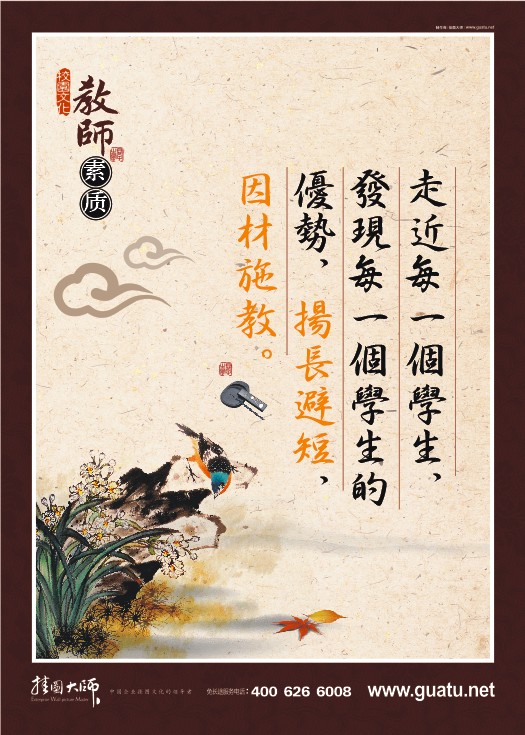 www.guatu.net
校園文化
教師
素质
走近每一個學生、
發現每一個學生的
優勢、揚長避短,
因材施教。
挂图大师
中国企业挂图文化的领导者
免长途服务电话: 400 626 6008
www.guatu.net